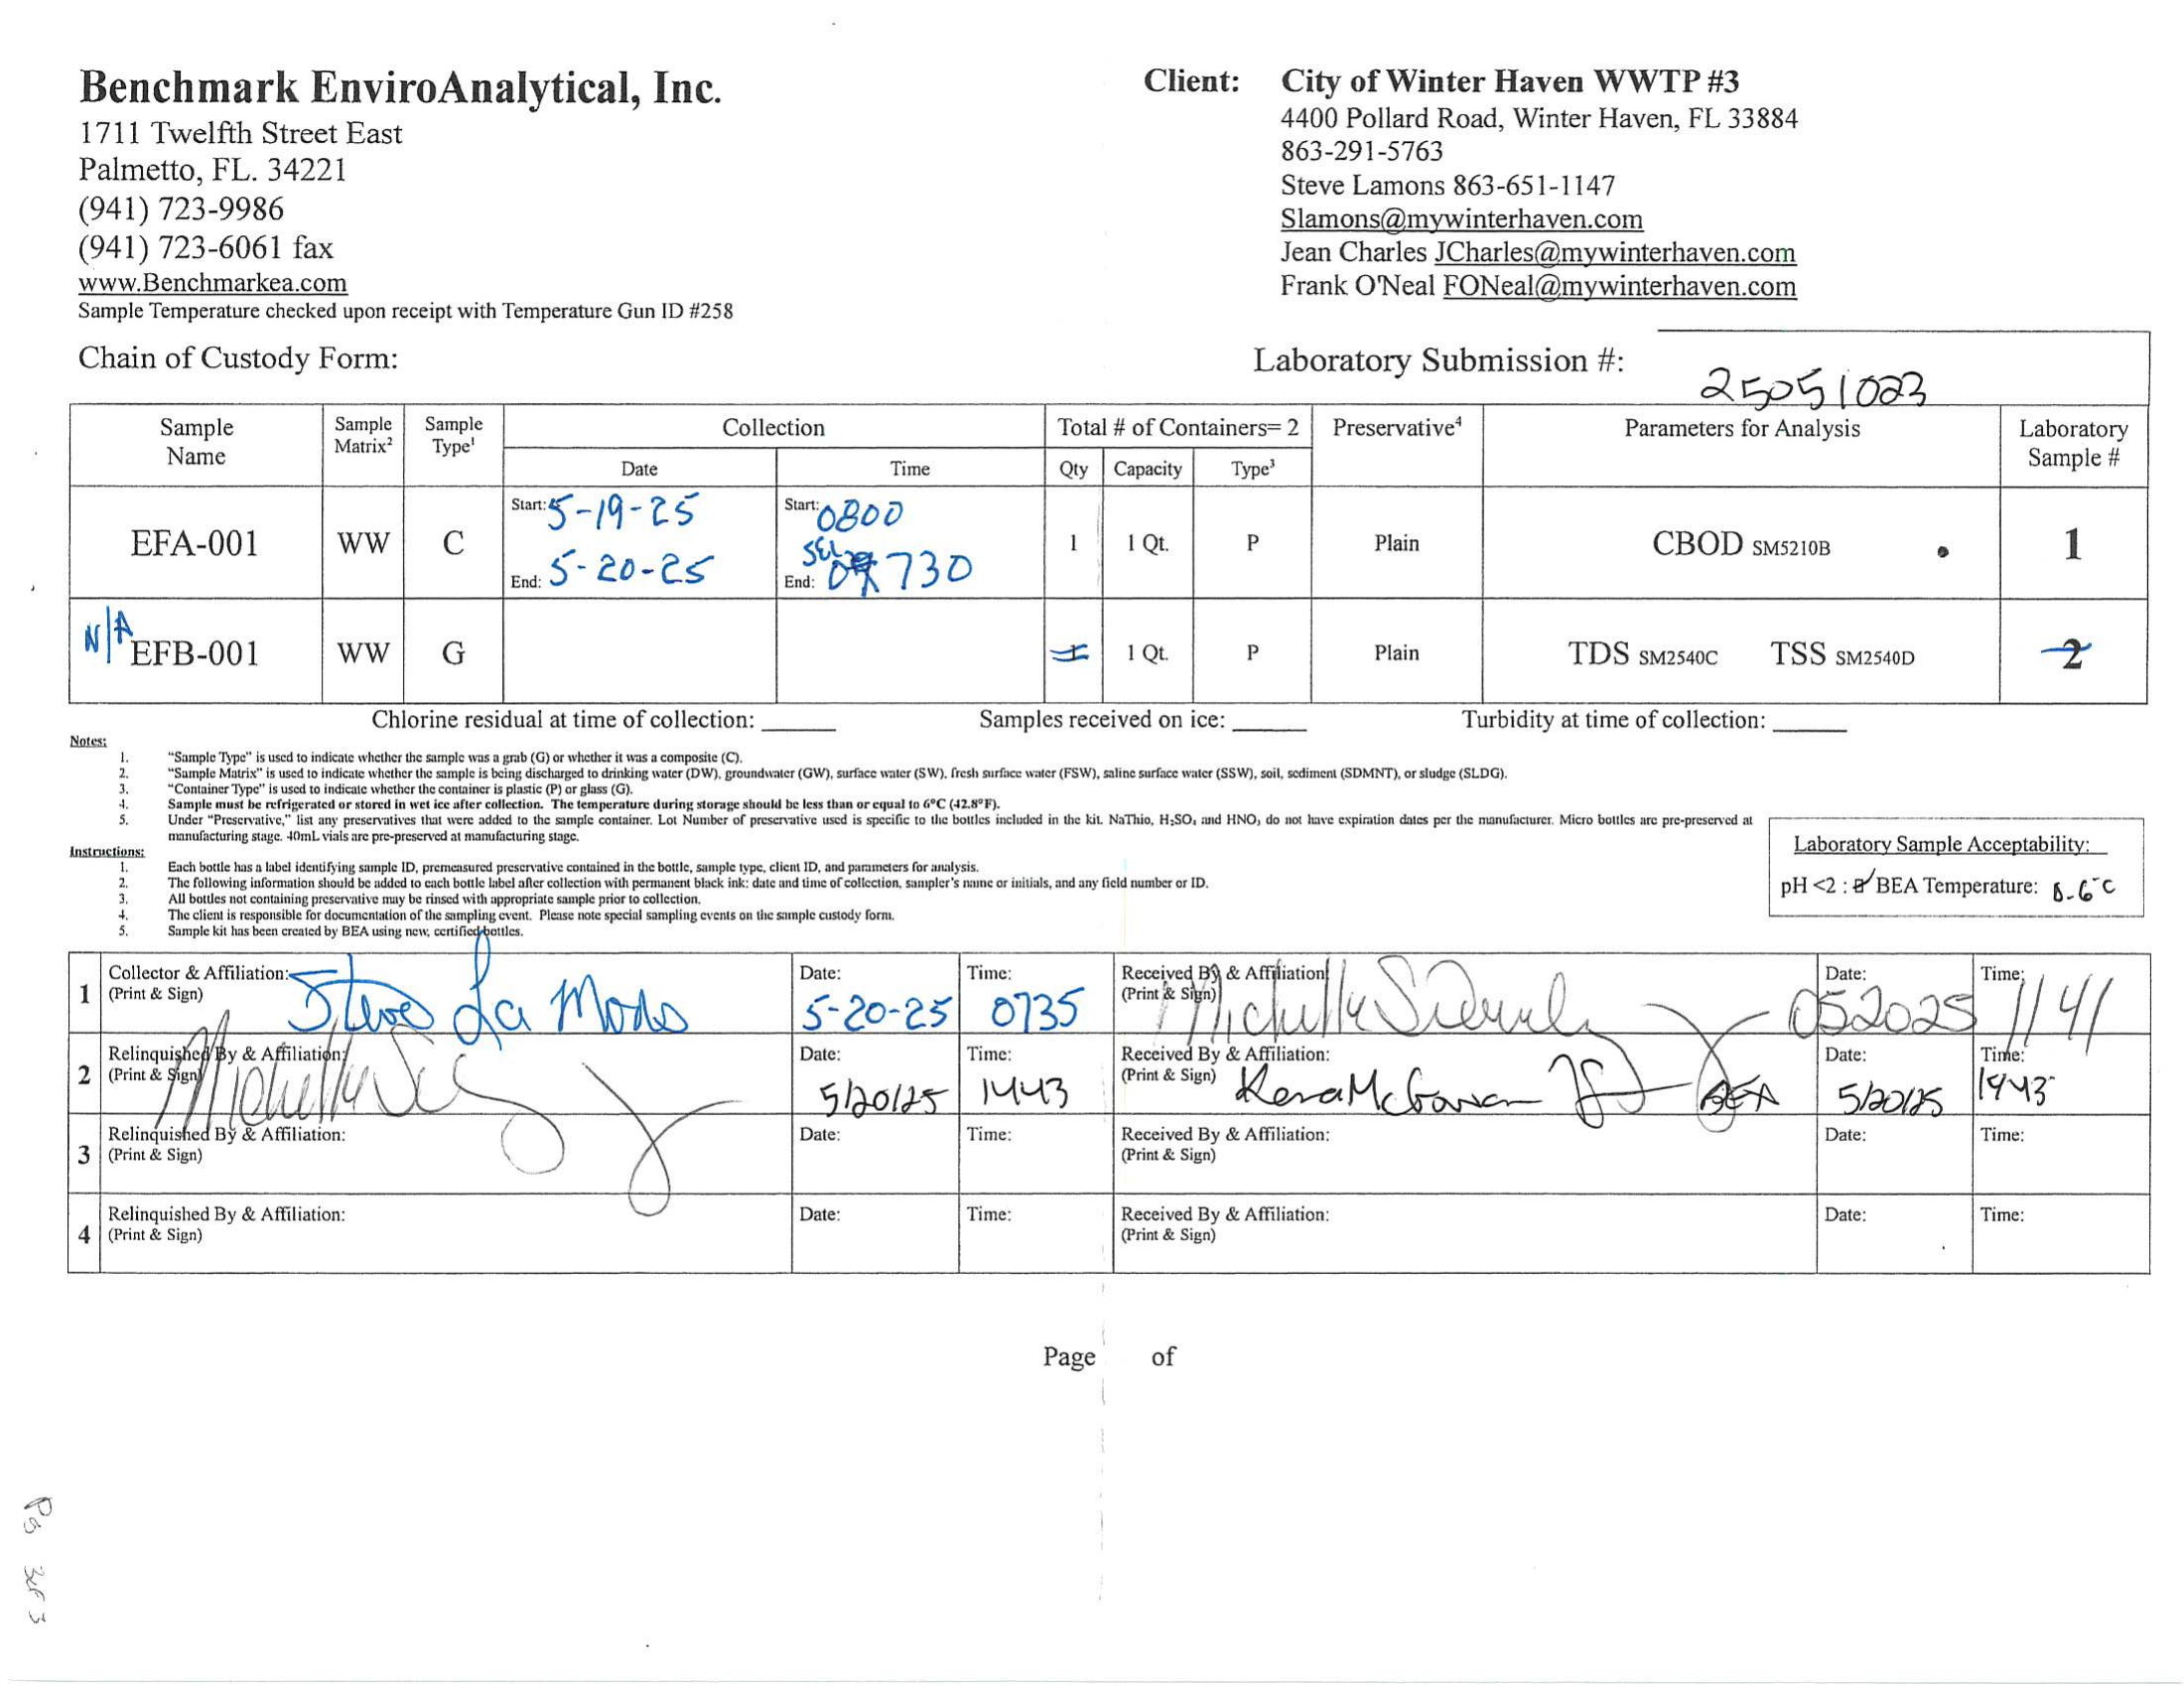 Benchmark EnviroAnalytical, Inc.
1711 Twelfth Street East
Palmetto, FL. 34221
(941) 723-9986
(941) 723-6061 fax
www.Benchmarkea.com
Sample Temperature checked upon receipt with Temperature Gun ID #258
Client: City of Winter Haven WWTP #3
4400 Pollard Road, Winter Haven, FL 33884
863-291-5763
Steve Lamons 863-651-1147
Slamons@mywinterhaven.com
Jean Charles JCharles@mywinterhaven.com
Frank O'Neal FONeal@mywinterhaven.com
Chain of Custody Form:
Laboratory Submission #: 25051023
Sample Name
Sample Matrix²
Sample Type¹
Collection
Date
Time
Total # of Containers= 2
Qty
Capacity
Type³
Preservative⁴
Parameters for Analysis
Laboratory Sample #
EFA-001 WW C Start: 5-19-25 Start: 0800 1 1 Qt. P Plain CBOD SM5210B 1
End: 5-20-25 SEL End: 0730
N/A EFB-001 WW G 1 1 Qt. P Plain TDS SM2540C TSS SM2540D 2
Chlorine residual at time of collection: Samples received on ice: Turbidity at time of collection:
Notes:
1. "Sample Type" is used to indicate whether the sample was a grab (G) or whether it was a composite (C).
2. "Sample Matrix" is used to indicate whether the sample is being discharged to drinking water (DW), groundwater (GW), surface water (SW), fresh surface water (FSW), saline surface water (SSW), soil, sediment (SDMNT), or sludge (SLDG).
3. "Container Type" is used to indicate whether the container is plastic (P) or glass (G).
4. Sample must be refrigerated or stored in wet ice after collection. The temperature during storage should be less than or equal to 6°C (42.8°F).
5. Under "Preservative," list any preservatives that were added to the sample container. Lot Number of preservative used is specific to the bottles included in the kit. NaThio, H₂SO₄ and HNO₃ do not have expiration dates per the manufacturer. Micro bottles are pre-preserved at
manufacturing stage. 40mL vials are pre-preserved at manufacturing stage.
Instructions:
1. Each bottle has a label identifying sample ID, premeasured preservative contained in the bottle, sample type, client ID, and parameters for analysis.
2. The following information should be added to each bottle label after collection with permanent black ink: date and time of collection, sampler's name or initials, and any field number or ID.
3. All bottles not containing preservative may be rinsed with appropriate sample prior to collection.
4. The client is responsible for documentation of the sampling event. Please note special sampling events on the sample custody form.
5. Sample kit has been created by BEA using new, certified bottles.
Laboratory Sample Acceptability:
pH <2 : BEA Temperature: °C
1 Collector & Affiliation: (Print & Sign) Steve La Mons Date: 5-20-25 Time: 0735 Received By & Affiliation (Print & Sign) Michelle Date: 052025 Time: 1141
2 Relinquished By & Affiliation: (Print & Sign) Michelle Date: 5/20/25 Time: 1443 Received By & Affiliation: (Print & Sign) Kera McGowan BEA Date: 5/20/25 Time: 1443
3 Relinquished By & Affiliation: (Print & Sign) Date: Time: Received By & Affiliation: (Print & Sign) Date: Time:
4 Relinquished By & Affiliation: (Print & Sign) Date: Time: Received By & Affiliation: (Print & Sign) Date: Time:
Page of
Pg 3 of 3